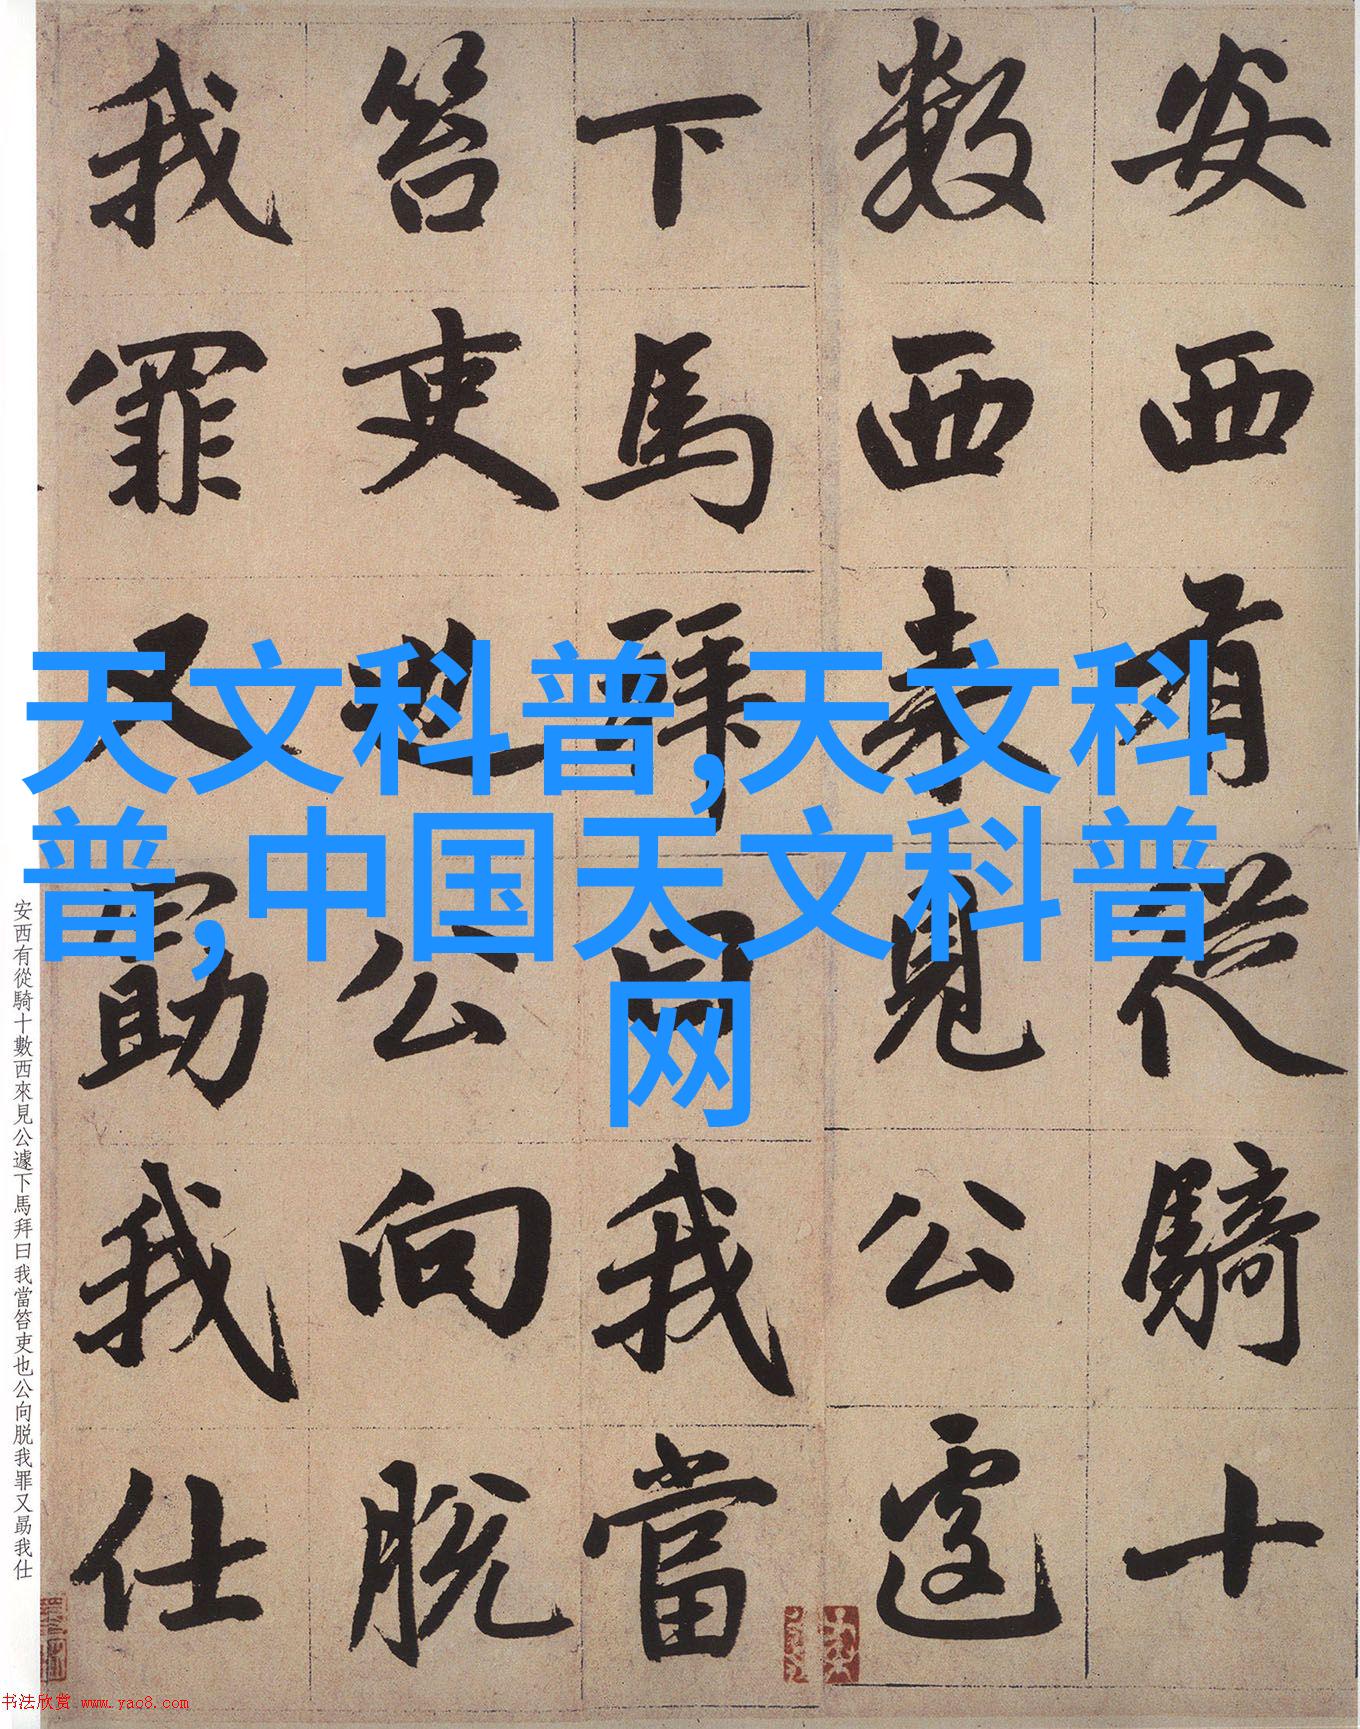 安西有從騎十
數西來見公遽
下馬拜曰我當
笞吏也公向脱
我罪又勗我仕
天文科普,天文科
普,中国天文科普
网
安西有從騎十數西來見公遽下馬拜曰我當笞吏也公向脱我罪又勗我仕
书法欣赏 www.yac8.com